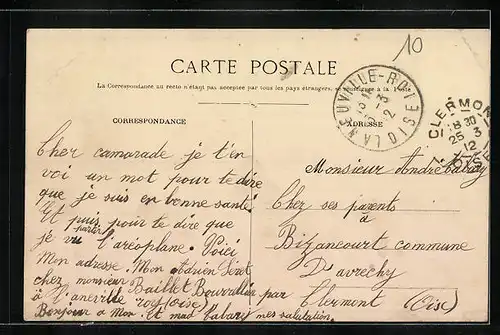 10
CARTE POSTALE
La Correspondance au recto n'étant pas acceptée par tous les pays étrangers, se renseigner à la Poste
CORRESPONDANCE
Cher camarade je t'en
voi un mot pour te dire
que je suis en bonne santé
Et puis pour te dire que
je vu partir l'aréoplane. Voici
Mon adresse. Mon Adrien
chez monsieur Baillet Bourrellier
à l'aneuville roy (oise)
Bonjour a Mon. et mad. Cabary mes salutation.
LANEUVILLE-ROI
OISE
CLERMONT
8 30
25 3
12
OISE
ADRESSE
Monsieur André Cabary
Chez ses parents
à
Bizancourt commune
D'avrechy
par Clermont (Oise)